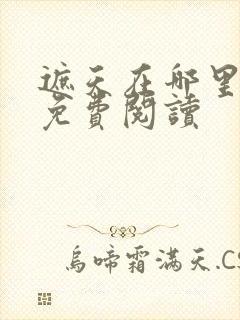 遮天在哪里
免費閱讀
烏啼霜滿天.CS